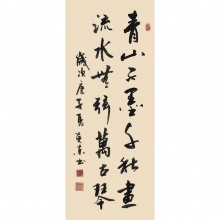 青山不墨千秋畫
流水無弦萬古琴
歲次庚子夏